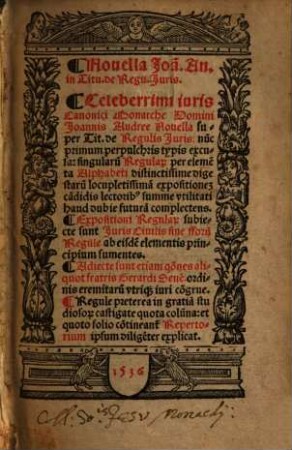 ¶ Nouella Joā. An.
in Titu. de Regu. Juris.
¶ Celeberrimi iuris
Canonici Monarche Domini
Joannis Andree Nouella su-
per Tit. de Regulis Juris: nūc
primum perpulchris typis excu-
sa: singularū Regulaꝝ per elemē-
ta Alphabeti distinctissime dige
starū locupletissimā expositionez
cādidis lectorib⁹ summe vtilitati
haud dubie futurā complectens.
¶ Expositioni Regulaꝝ subie-
cte sunt Juris Ciuilis siue fforū
Regule ab eisdē elementis prin-
cipium sumentes.
¶ Adiecte sunt etiam qōnes ali-
quot fratris Gerardi Senē. ordi-
nis eremitarū vtriqꝫ iuri cōgrue.
¶ Regule preterea in gratiā stu-
diosoꝝ castigate quota colūna: et
quoto folio cōtineant Reperto-
rium ipsum diligēter explicat.
1536
Coll. So. Jesu Monachij.